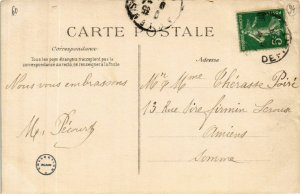 60
CARTE POSTALE
Correspondance
Tous les pays étrangers n'acceptent pas de
correspondance au recto, se renseigner à la Poste
Adresse
Nous vous embrassons
M. Pécourt
Mr & Mme Thérasse Poiré
13 Rue Sire Firmin Leroux
Amiens
Somme